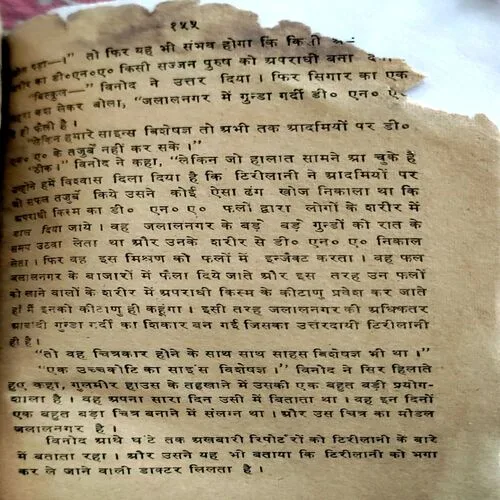 १५५
रहा—।" तो फिर यह भी संभव होगा कि किसी
का डी०एन०ए० किसी सज्जन पुरुष को अपराधी बना
"बिल्कुल—" विनोद ने उत्तर दिया। फिर सिगार का एक
कश लेकर बोला, "जलालनगर में गुन्डा गर्दी डी० एन० ए०
ही फैली है।
"लेकिन हमारे साइन्स विशेषज्ञ तो अभी तक आदमियों पर डी०
एन० ए० के तजुर्बे नहीं कर सके।"
"ठीक।" विनोद ने कहा, "लेकिन जो हालात सामने आ चुके है
उन्होने हमें विश्वास दिला दिया है कि टिरीलानी ने आदमियों पर
भी सफल तजुर्बे किये उसने कोई ऐसा ढंग खोज निकाला था कि
अपराधी किस्म का डी० एन० ए० फलों द्वारा लोगों के शरीर में
डाल दिया जाये। वह जलालनगर के बड़े बड़े गुन्डों को रात के
समय उठवा लेता था और उनके शरीर से डी० एन० ए० निकाल
लेता। फिर वह इस मिश्रण को फलों में इन्जैक्ट करता। वह फल
जलालनगर के बाजारों में फैला दिये जाते और इस तरह उन फलों
को खाने वालों के शरीर में अपराधी किस्म के कीटाणु प्रवेश कर जाते
हाँ मैं इनको कीटाणु ही कहूंगा। इसी तरह जलालनगर की अधिकतर
आबादी गुन्डा गर्दी का शिकार बन गई जिसका उत्तरदायी टिरीलानी
ही है।
"तो वह चित्रकार होने के साथ साथ साइस विशेषज्ञ भी था।"
"एक उच्चकोटि का साइंस विशेषज्ञ।" विनोद ने सिर हिलाते
हुए कहा, गुलमीर हाउस के तहखाने में उसकी एक बहुत बड़ी प्रयोग-
शाला है। वह अपना सारा दिन उसी में बिताता था। वह इन दिनों
एक बहुत बड़ा चित्र बनाने में संलग्न था। और उस चित्र का मौडल
जलालनगर है।
विनोद आधे घंटे तक अखबारी रिपोर्टरों को टिरीलानी के बारे
में बताता रहा। और उसने यह भी बताया कि टिरीलानी को भगा
कर ले जाने वाली डाक्टर लिलता है।